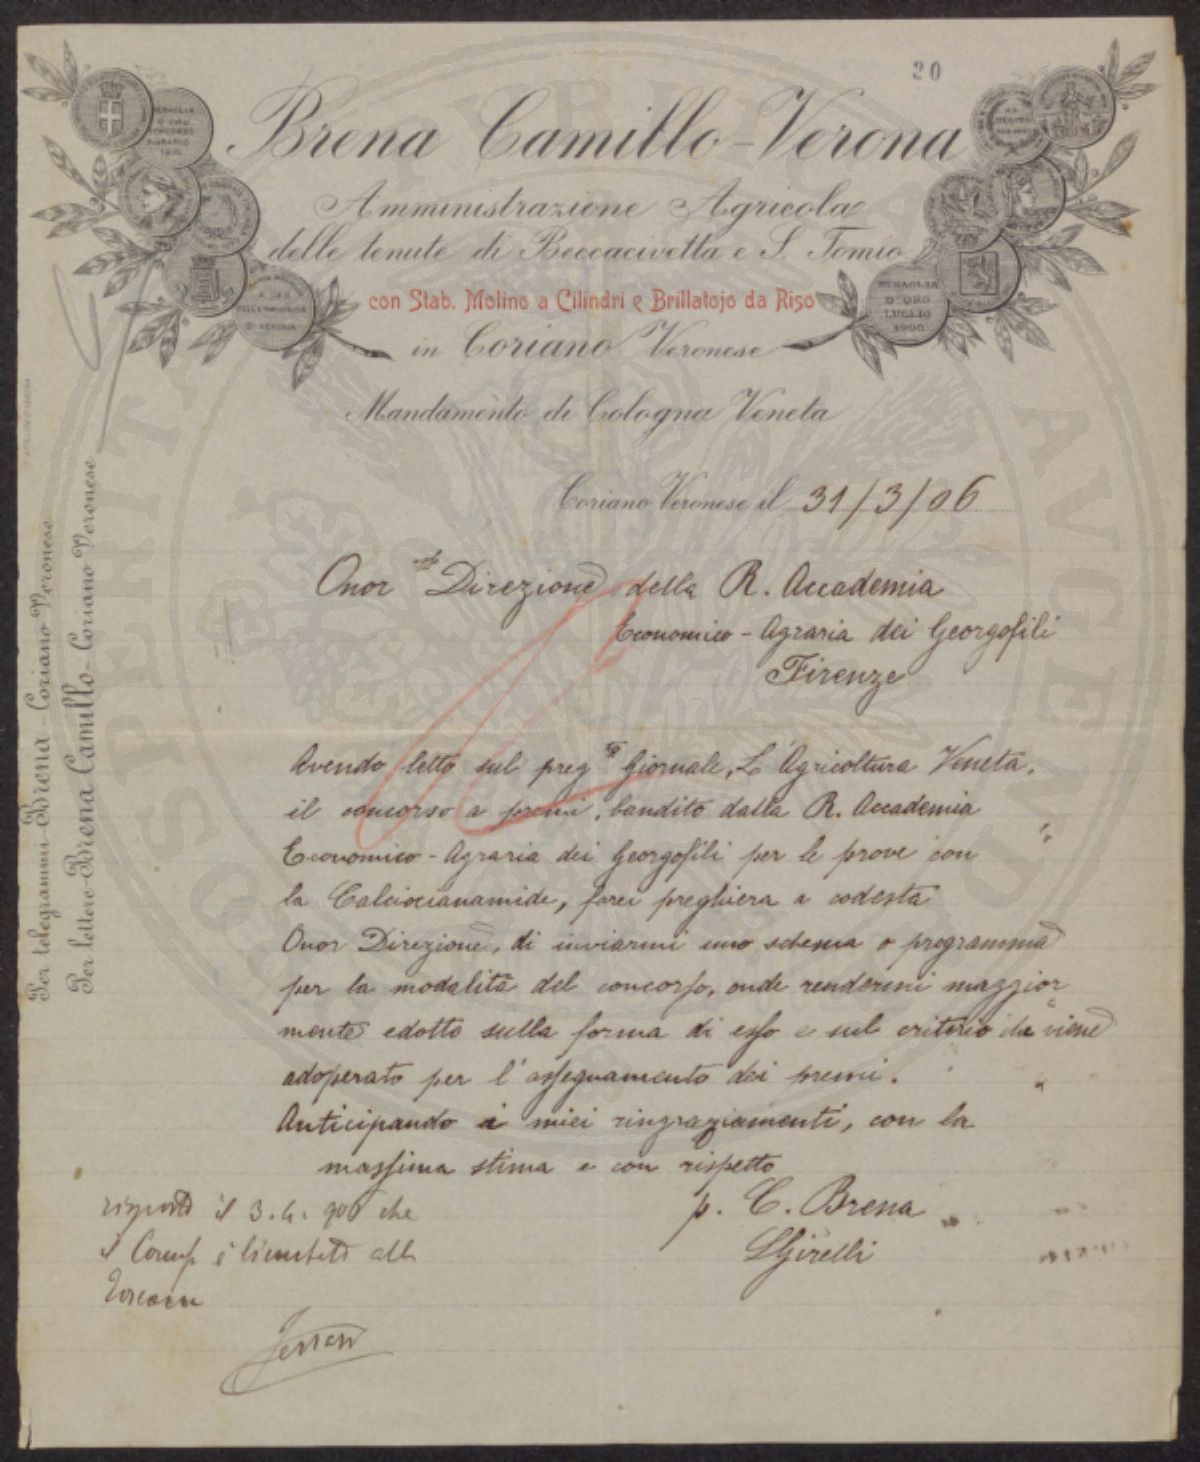 20
Brena Camillo-Verona
Amministrazione Agricola
delle tenute di Beccacivetta e S. Tomio
con Stab. Molino a Cilindri e Brillatojo da Riso
in Coriano Veronese
Mandamento di Cologna Veneta
MEDAGLIA D'ORO LUGLIO 1900
Coriano Veronese il 31/3/06
Onor Direzione della R. Accademia
Economico-Agraria dei Georgofili
Firenze
Avendo letto sul preg Giornale, L'Agricoltura Veneta,
il concorso a premi, bandito dalla R. Accademia
Economico-Agraria dei Georgofili per le prove con
la Calciocianamide, farei preghiera a codesta
Onor Direzione, di inviarmi uno schema o programma
per la modalità del concorso, onde rendermi maggior
mente edotto sulla forma di esso e sul criterio viene
adoperato per l'assegnamento dei premi.
Anticipando i miei ringraziamenti, con la
massima stima e con rispetto
p. C. Brena
LGirelli
risposto il 3.4. che
il è limitato alla
Toscana
Per telegrammi-Brena-Coriano Veronese
Per lettere-Brena Camillo-Coriano Veronese